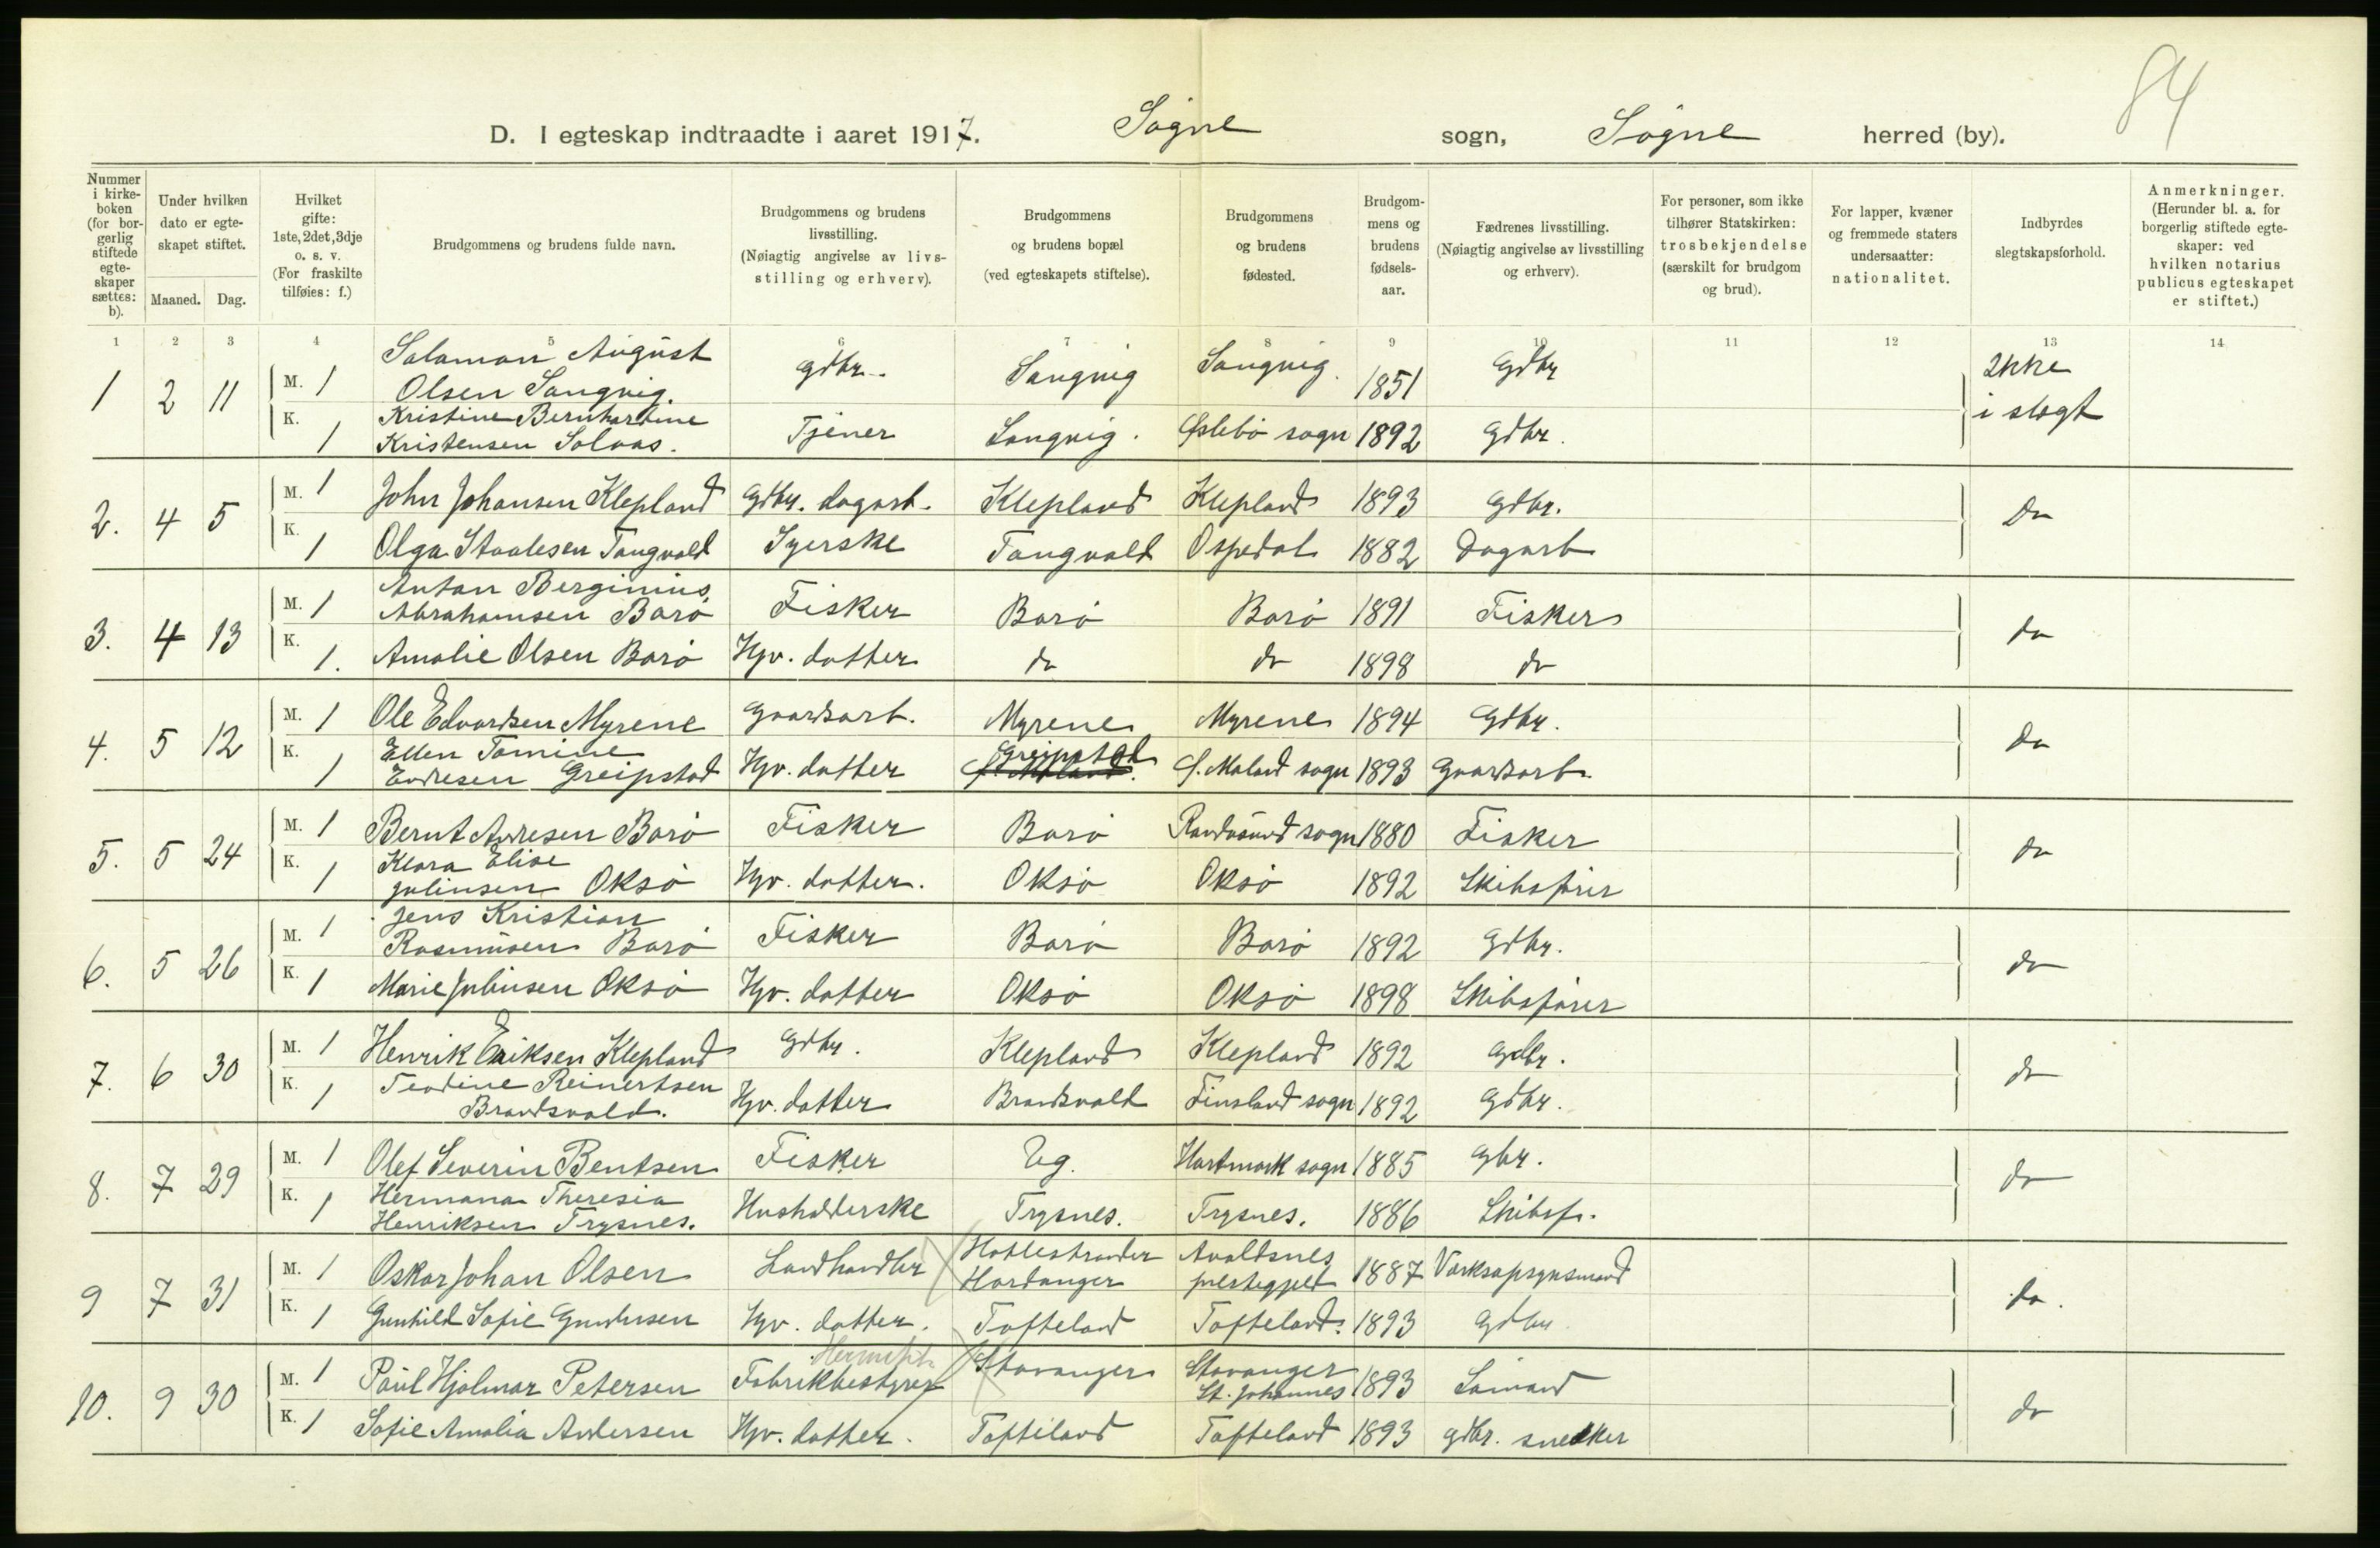 84
D. I egteskap indtraadte i aaret 1917. Søgne sogn, Søgne herred (by).
Nummer i kirkeboken (for borgerlig stiftede egteskaper sættes: b).
Under hvilken dato er egteskapet stiftet.
Maaned. Dag.
Hvilket gifte: 1ste, 2det, 3dje o. s. v. (For fraskilte tilføies: f.)
Brudgommens og brudens fulde navn.
Brudgommens og brudens livsstilling. (Nøiagtig angivelse av livsstilling og erhverv).
Brudgommens og brudens bopæl (ved egteskapets stiftelse).
Brudgommens og brudens fødested.
Brudgommens og brudens fødselsaar.
Fædrenes livsstilling. (Nøiagtig angivelse av livsstilling og erhverv).
For personer, som ikke tilhører Statskirken: trosbekjendelse (særskilt for brudgom og brud).
For lapper, kvæner og fremmede staters undersaatter: nationalitet.
Indbyrdes slegtskapsforhold.
Anmerkninger. (Herunder bl. a. for borgerlig stiftede egteskaper: ved hvilken notarius publicus egteskapet er stiftet.)
1 2 3 4 5 6 7 8 9 10 11 12 13 14
1 2 11 M. 1 Salamon August Olsen Sangvig. Gdbr. Sangvig Sangvig. 1851 Gdbr Ikke i slegt
K. 1 Kristine Bernhardine Kristensen Solaas. Tjener Sangvig. Øslebø sogn 1892 Gdbr.
2. 4 5 M. 1 John Johansen Klepland Gdbr. dagarb. Klepland Klepland 1893 Gdbr. Do
K. 1 Olga Staalesen Tangvald Syerske Tangvald Ospedal 1882 Dagarb
3. 4 13 M. 1 Anton Berginius Abrahamsen Borø Fisker Borø Borø 1891 Fisker do
K. 1. Amalie Olsen Borø Hjv. datter do do 1898 do
4. 5 12 M. 1 Ole Edvardsen Myrene Gaardsarb. Myrene Myrene 1894 Gdbr. do
K. 1 Ellen Tomine Endresen Greipstad Hjv. datter Greipstad Ø. Maland sogn 1893 Gaardsarb.
5. 5 24 M. 1 Bernt Andresen Borø Fisker Borø Randøsund sogn 1880 Fisker do
K. 1 Klara Elise Juliusen Oksø Hjv. datter. Oksø Oksø 1892 Skibsfører
6. 5 26 M. 1 Jens Kristian Rasmusen Borø Fisker Borø Borø 1892 Gdbr. do
K. 1 Marie Juliusen Oksø Hjv. datter Oksø Oksø 1898 Skibsfører
7. 6 30 M. 1 Henrik Eriksen Klepland Gdbr. Klepland Klepland 1892 Gdbr. do
K. 1 Teodine Reinertsen Brandsvold. Hjv. datter Brandsvold Finsland sogn 1892 Gdbr.
8. 7 29 M. 1 Olef Severin Bentsen Fisker Ug. Hartmark sogn 1885 Gbr. do
K. 1 Hermana Theresia Henriksen Trysnes. Husholderske Trysnes. Trysnes. 1886 Skibsf.
9 7 31 M. 1 Oskar Johan Olsen Landhandler Hardanger Avaldsnes prestegjeld 1887 do.
K. 1 Gunhild Sofie Gundersen Hjv. datter. Tofteland Tofteland. 1893 Gdbr
10. 9 30 M. 1 Paul Hjalmar Petersen Fabrikbestyrer Stavanger Stavanger St. Johannes 1893 Sømand do
K. 1 Sofie Amalia Andersen Hjv. datter. Tofteland Tofteland 1893 gdbr. snedker